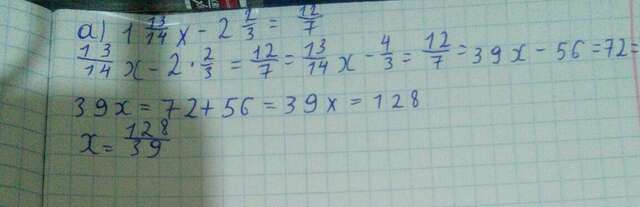 а) 1 13/14 x - 2 2/3 = 12/7
13/14 x - 2 · 2/3 = 12/7 = 13/14 x - 4/3 = 12/7 = 39x - 56 = 72 =
39x = 72 + 56 = 39x = 128
x = 128/39